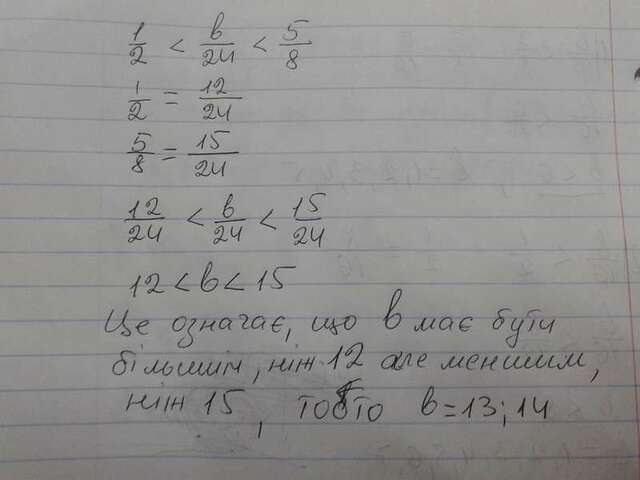 1/2 < b/24 < 5/8
1/2 = 12/24
5/8 = 15/24
12/24 < b/24 < 15/24
12 < b < 15
Це означає, що b має бути
більшим, ніж 12 але меншим,
ніж 15, тобто b = 13; 14